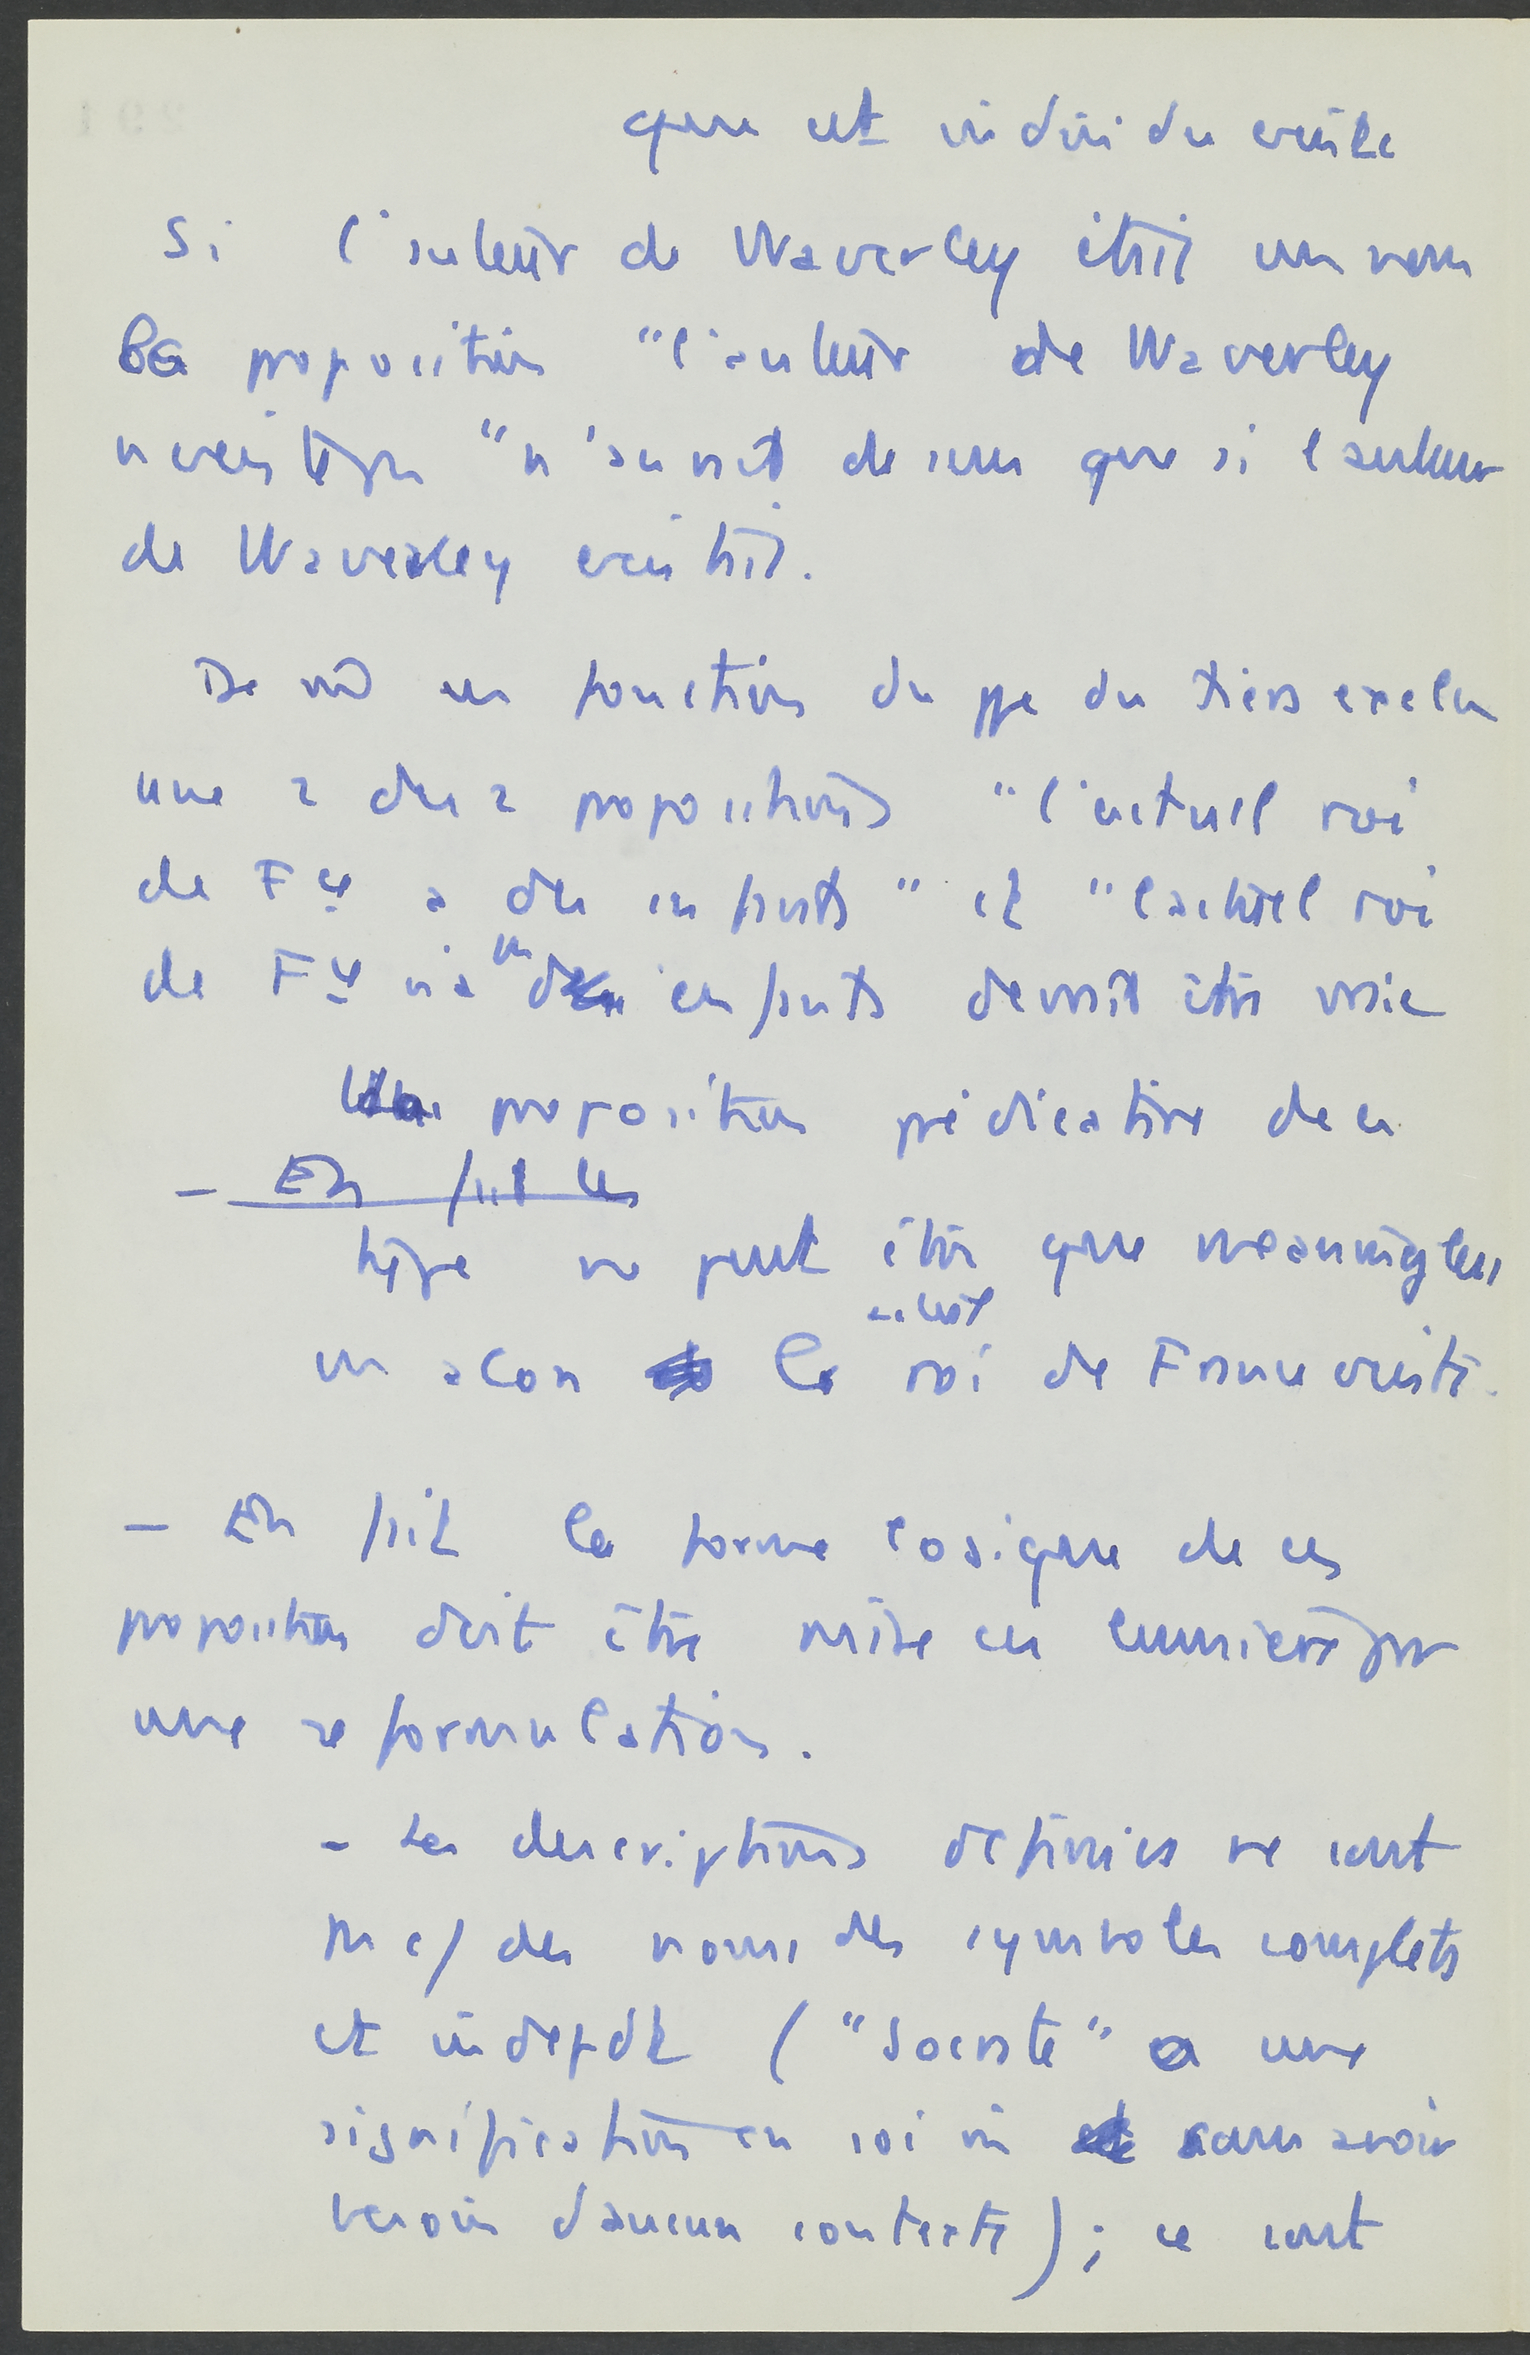 que cet individu existe
Si l'auteur de Waverley était un nom
la proposition "l'auteur de Waverley
n'existe pas" n'aurait de sens que si l'auteur
de Waverley existait.
De en fonction du ppe du tiers exclu
une 2 des 2 propositions "l'actuel roi
de Fce a des enfants" et "l'actuel roi
de Fce n'a pas d'enfants devrait être vraie
Une proposition prédicative de ce
- En fait les
type ne peut être que meaningless
actuel
ou alors le roi de France existe.
- En fait la forme logique de ces
propositions doit être mise en lumière par
une reformulation.
- Les descriptions définies ne sont
pas c/ des noms, des symboles complets
et indepdt ("Socrate" a une
signification en soi sans avoir
besoin d'aucun contexte) ; ce sont